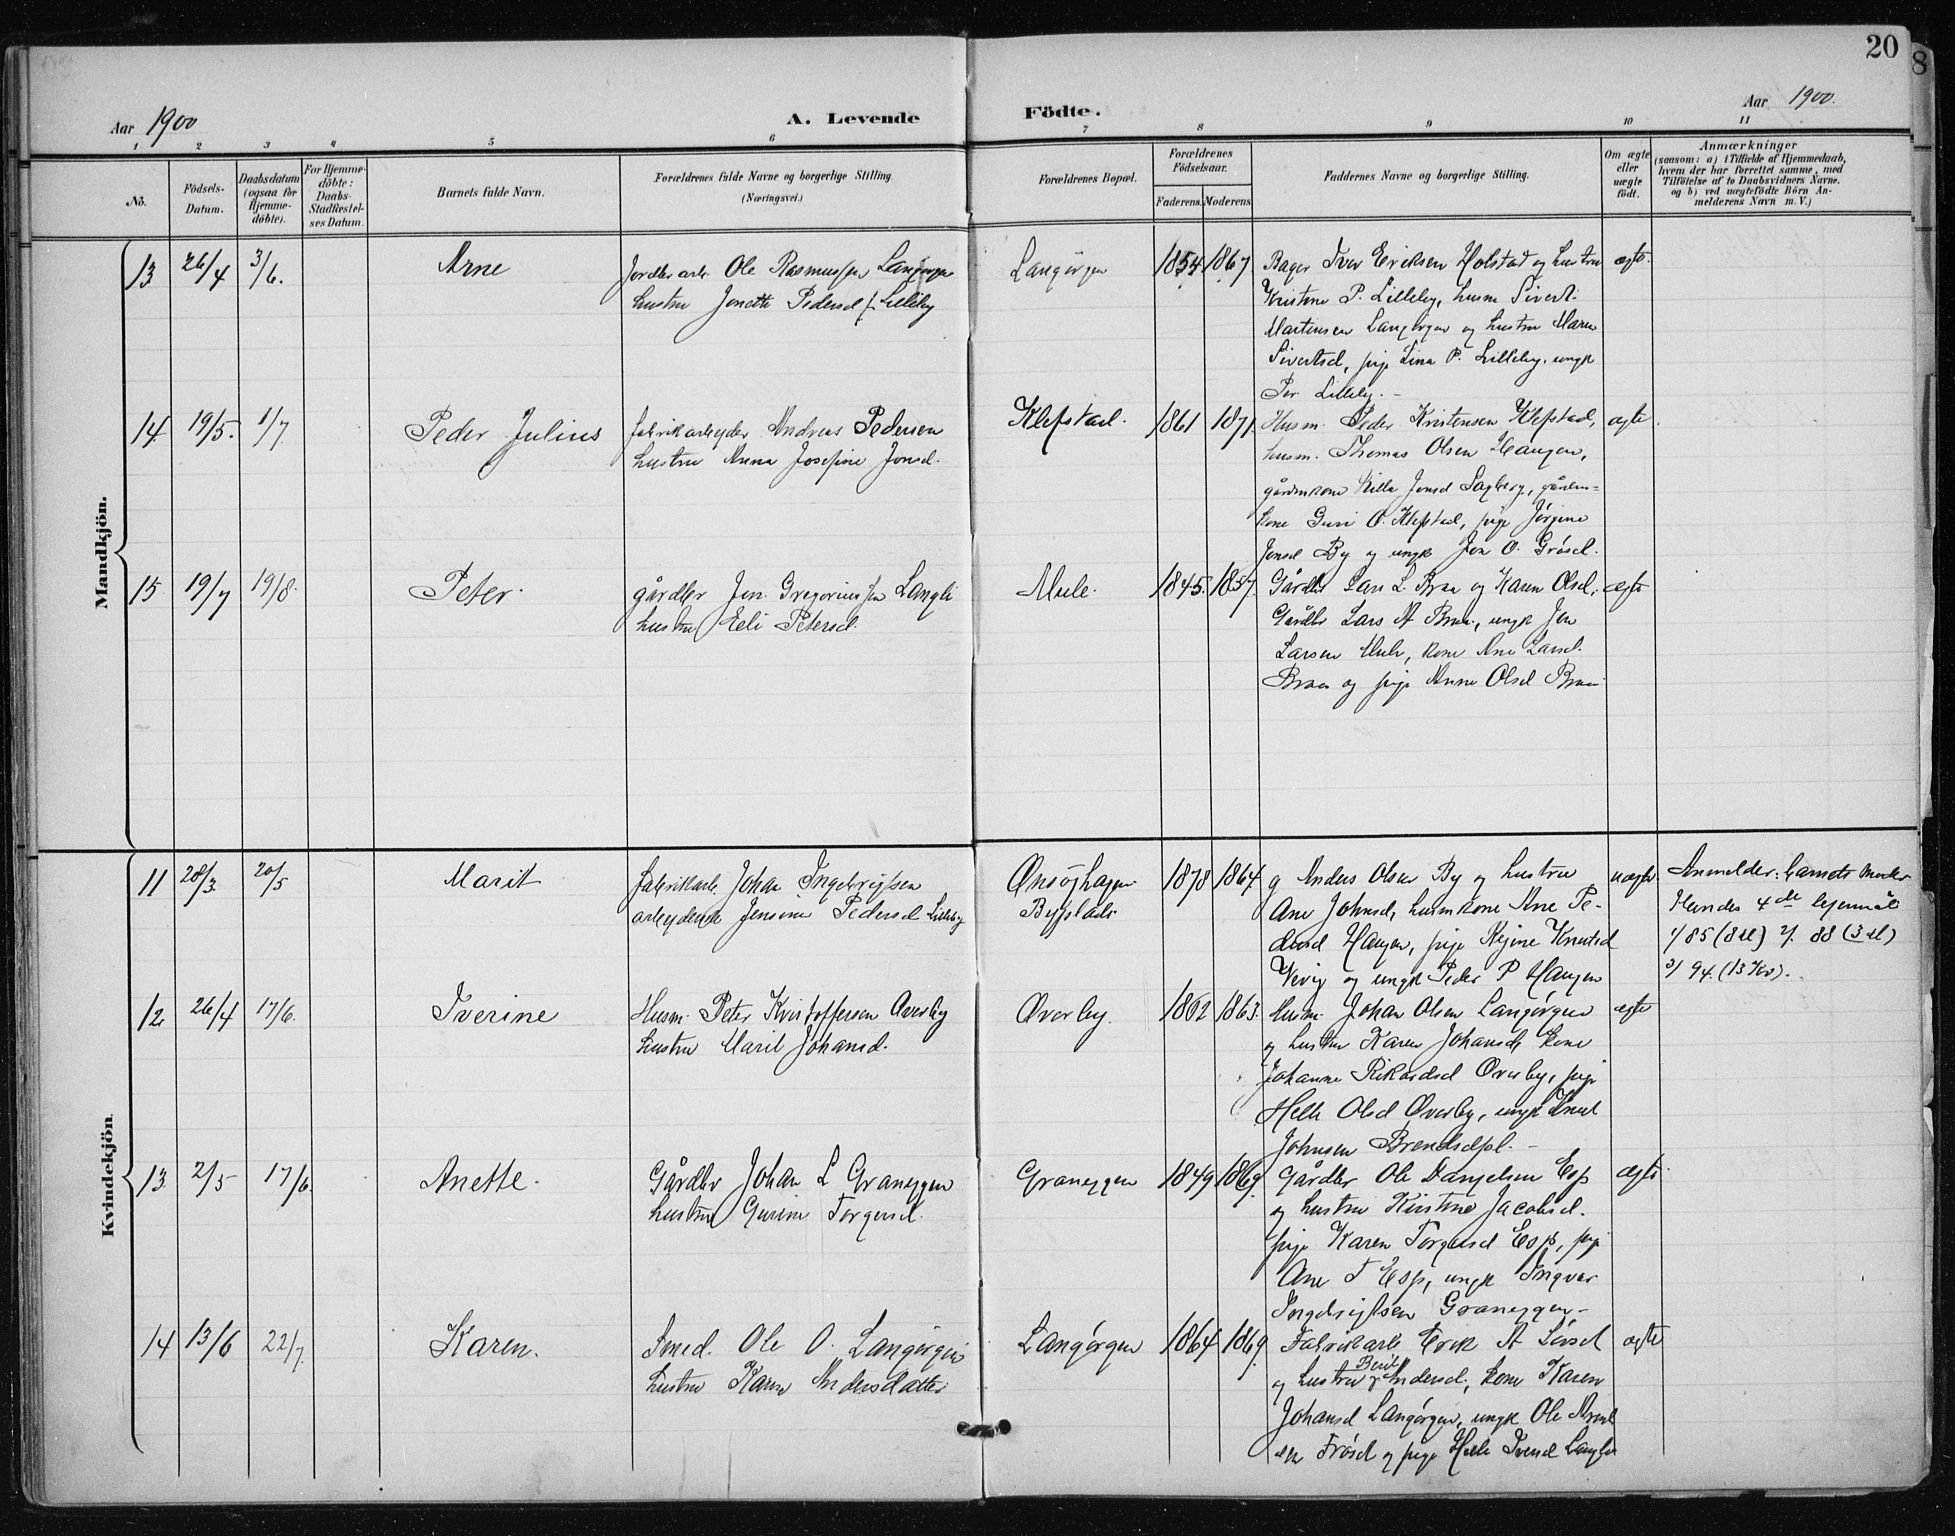 20
8
Aar 1900
A. Levende Födte.
Aar 1900.
1 2 3 4 5 6 7 8 9 10 11
No.
Födsels-
Datum.
Daabsdatum
(ogsaa for
Hjemme-
döbte).
For Hjemme-
döbte:
Daabs-
Stadfæstel-
ses Datum.
Barnets fulde Navn.
Forældrenes fulde Navne og borgerlige Stilling.
(Næringsvei.)
Forældrenes Bopæl.
Forældrenes
Födselsaar.
Faderens. Moderens.
Faddernes Navne og borgerlige Stilling.
Om ægte
eller
uægte
födt.
Anmærkninger
(saasom: a) i Tilfælde af Hjemmedaab,
hvem der har forrettet samme, med
Tilföielse af to Daabsvidners Navne.
og b) ved uægtefödte Börn An-
melderens Navn m. V.)
Mandkjön.
13 26/4 3/6. Arne
Ole Rasmussen Langørgen
hustru Jonette Pedersd f. Lilleby
Langørgen 1854 1867
Bager Iver Eriksen Holstad og hustru
Kristine P. Lilleby, husm Sivert
Martinsen Langørgen og hustru Maren
Sivertsd, pige Lina P. Lilleby, ungk
Per Lilleby.-
ægte.
14 19/5. 1/7 Peder Julius
fabrikarbeyder Andreas Pedersen
hustru Anna Josefine Jonsd.
Klefstad. 1861 1871.
Husm. Peder Kristensen Klefstad,
husm. Thomas Olsen Haugen,
gårdmkone Jonsd Sagberg, gårdm-
kone Guri O. Klefstad, pige Jørgine
Jonsd By og ungk Jon O. Grøset.
ægte.
15 19/7 19/8. Peter.
gårdbr Jon Gregoriussen Langli
hustru Eli Petersd.
Mule. 1845. 1857.
Gårdbr Lars L. Braa og Karen Olsd,
Gårdbr Lars A Braa, ungk Jon
Larsen Mule, kone Ane Larsd.
Braa og pige Anne Olsd Braa
ægte
Kvindekjön.
11 28/3. 20/5 Marit
fabrikarb. Johan Ingebrigtsen
arbeyderske Jensine Pedersd Lilleby
Ønsøyhagen
1878 1864.
g Anders Olsen By og hustru
Ane Johnsd, husmkone Ane Pe-
dersd Haugen, pige Regine Knutsd
Vevig og ungk Peder P Haugen
uægte.
Anmelder: barnets moder
Hendes 4de lejermål
1/ 85 (8 ) 2/. 88 (3 )
3/ 94. (13 ).
12. 26/4 17/6. Iverine
Husm. Peter Kristoffersen Øverby
hustru Marit Johansd.
Øverby. 1862 1863.
Husm. Johan Olsen Langørgen
og hustru Karen Johansd kone
Johanne Rikardsd Øverby, pige
Helle Olsd Øverby, ungk Knut
Johnsen Brendsdpl.-
ægte
13 2/5 17/6. Anette.
Gårdbr Johan L Graneggen
hustru Gurine Torgersd.
Graneggen 1849 1869.
Gårdbr Ole Danjelsen Esp
og hustru Kirstine Jacobsd.
pige Karen Torgersd Esp, pige
Ane T Esp, ungk Ingvar
Ingebrigtsen Graneggen-
ægte
14 13/6 22/7. Karen.
Smed. Ole O. Langørgen
hustru Karen Andersdatter
Langørgen 1864 1869.
Fabrikarb Erik A
og hustru Berit Andersd, kone Karen
Johansd Langørgen, ungk Ole
Frøset og pige Helle Iversd
ægte